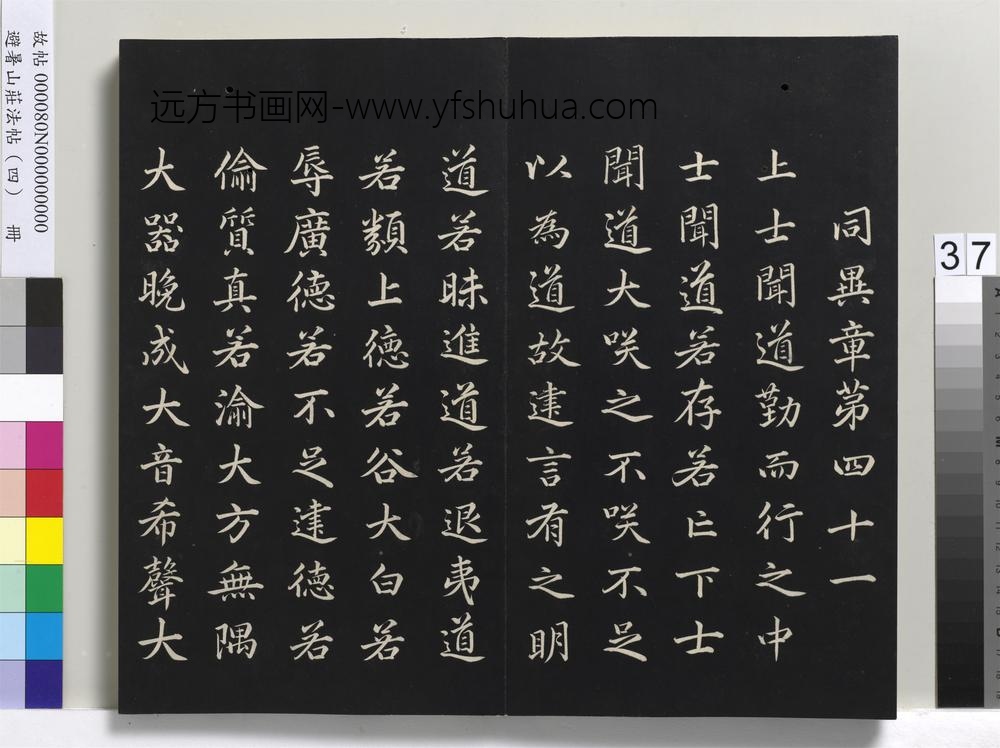 同異章第四十一
上士聞道勤而行之中
士聞道若存若亡下士
聞道大咲之不咲不足
以為道故建言有之明
道若昧進道若退夷道
若類上德若谷大白若
辱廣德若不足建德若
偷質真若渝大方無隅
大器晚成大音希聲大
远方书画网-www.yfshuhua.com
故帖 000080N000000000
避暑山莊法帖(四) 冊
37